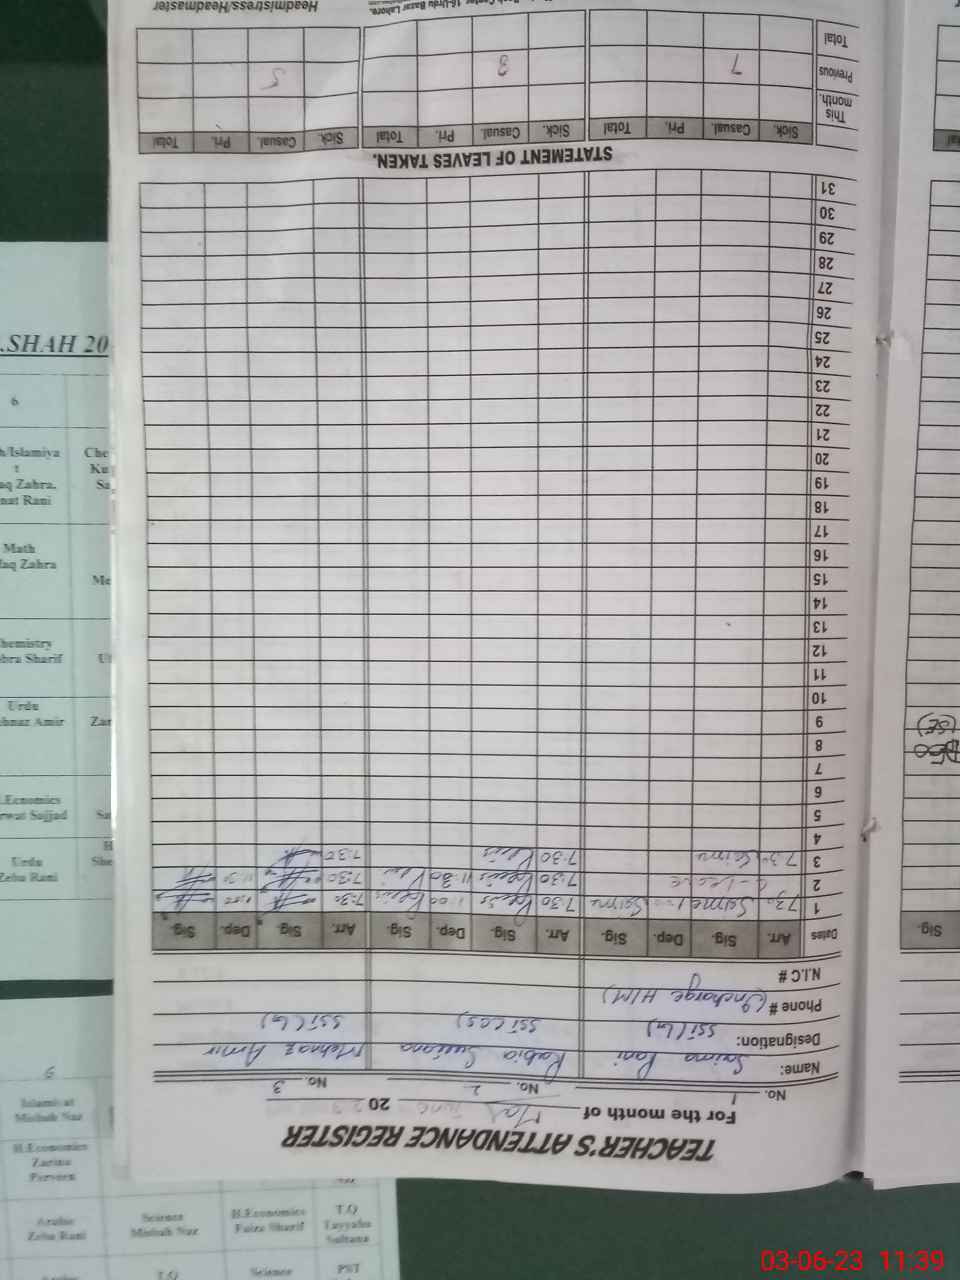 TEACHER'S ATTENDANCE REGISTER
For the month of May June 2023
No. 1 No. 2 No. 3
Name: Saima Rani Rabia Sultana Mehnaz Amir
Designation: SST(G) SST(CS) SST(G)
Phone # (Incharge H/M)
N.I.C #
Dates Arr. Sig. Dep. Sig. Arr. Sig. Dep. Sig. Arr. Sig. Dep. Sig.
1 7:30 Saima Saima 7:30 11:00 7:30
2 C-Leave 7:30 11:30 7:30 11:30
3 7:30 Saima 7:30 7:30
4
5
6
7
8
9
10
11
12
13
14
15
16
17
18
19
20
21
22
23
24
25
26
27
28
29
30
31
STATEMENT OF LEAVES TAKEN.
Sick. Casual. Pri. Total Sick. Casual. Pri. Total Sick. Casual. Pri. Total
This month.
Previous 7 8 5
Total
16-Urdu Bazar Lahore.
Headmistress/Headmaster
Sig.
(SE)
Total
.SHAH 20
6
h/Islamiya
t
aq Zahra.
nat Rani
Math
faq Zahra
hemistry
hra Sharif
Urdu
ehnaz Amir
.Ecnomics
rwat Sajjad
Urdu
Zeba Rani
9
Islamiyat
Misbah Naz
H.Economics
Zarina
Parveen
Arabic
Zeba Rani
Science
Misbah Naz
H.Economics
Faiza Sharif
T.Q
Tayyaba
Sultana
T.Q
Science
PST
03-06-23 11:39